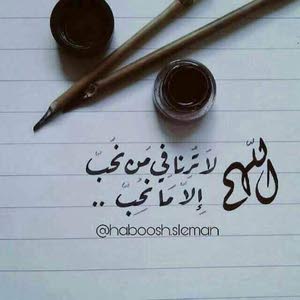 اللهم
لا ترنا في من نحب
إلا ما نحب ..
@haboosh.sleman